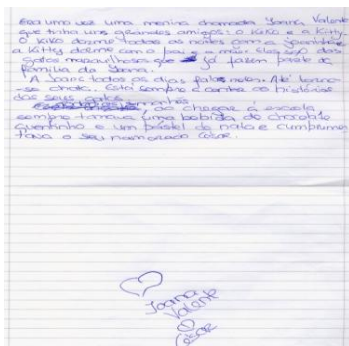 Era uma vez uma menina chamada Joana Valente
que tinha uns grandes amigos: o Kiko e a Kitty.
O Kiko dorme todas as noites com a Joaninha e
a Kitty dorme com o pai e a mãe. Eles são dois
gatos maravilhosos que já fazem parte da
família da Joana.
A Joana todos os dias fala neles. Até torna-
-se chata. Está sempre a contar as histórias
dos seus gatos.
ao chegar à escola
sempre tomava uma bebida de chocolate
quentinho e um pastel de nata e cumprimen-
tava o seu namorado César.
Joana
Valente
César